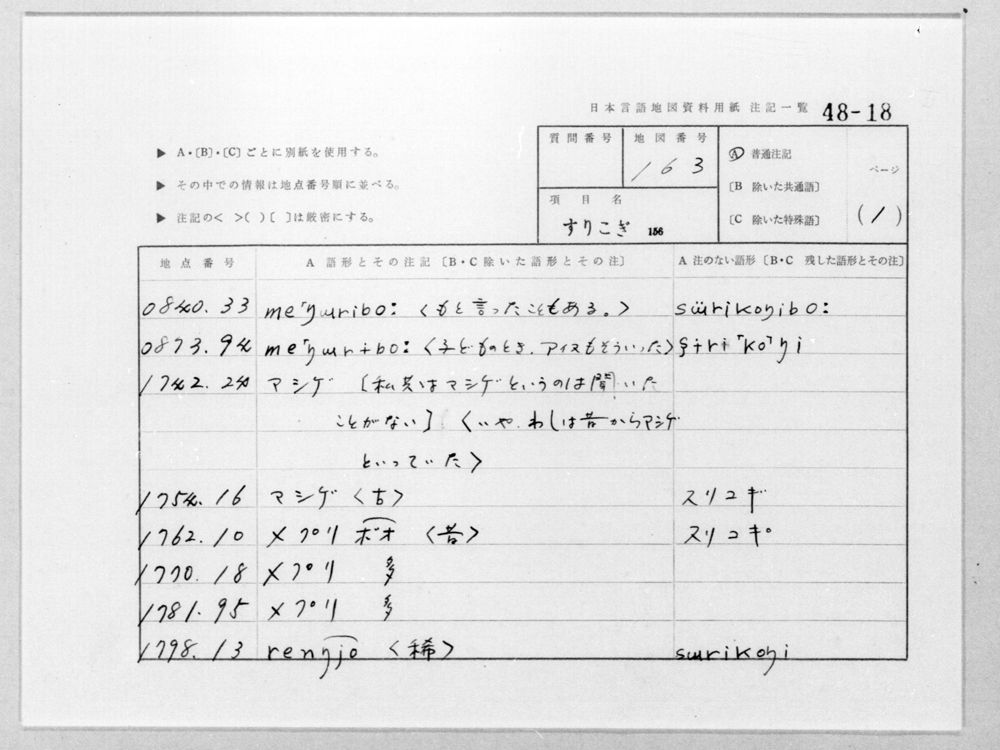 日本言語地図資料用紙 注記一覧 48-18
▶ A・〔B〕・〔C〕ごとに別紙を使用する。
▶ その中での情報は地点番号順に並べる。
▶ 注記の< >( )[ ]は厳密にする。
質問番号
地図番号
163
項目名
すりこぎ 156
Ⓐ 普通注記
〔B 除いた共通語〕
〔C 除いた特殊語〕
ページ
(1)
地点番号 A 語形とその注記〔B・C 除いた語形とその注〕 A 注のない語形〔B・C 残した語形とその注〕
0840.33 me'ŋɯribo: 〈もと言ったこともある。〉 sɯ̈rikoŋibo:
0873.94 me'ŋɯrɨbo: 〈子どものとき、アイヌもそういった〉 ʂɨri「ko」ŋi
1742.24 マシゲ [私共はマシゲというのは聞いた
ことがない] 〈いや、わしは昔からマシゲ
といっていた〉
1754.16 マシゲ〈古〉 スリコギ
1762.10 メク゚リボオ 〈昔〉 スリコキ゚
1770.18 メク゚リ 多
1781.95 メク゚リ 多
1798.13 reŋŋjo 〈稀〉 sɯrikoŋi